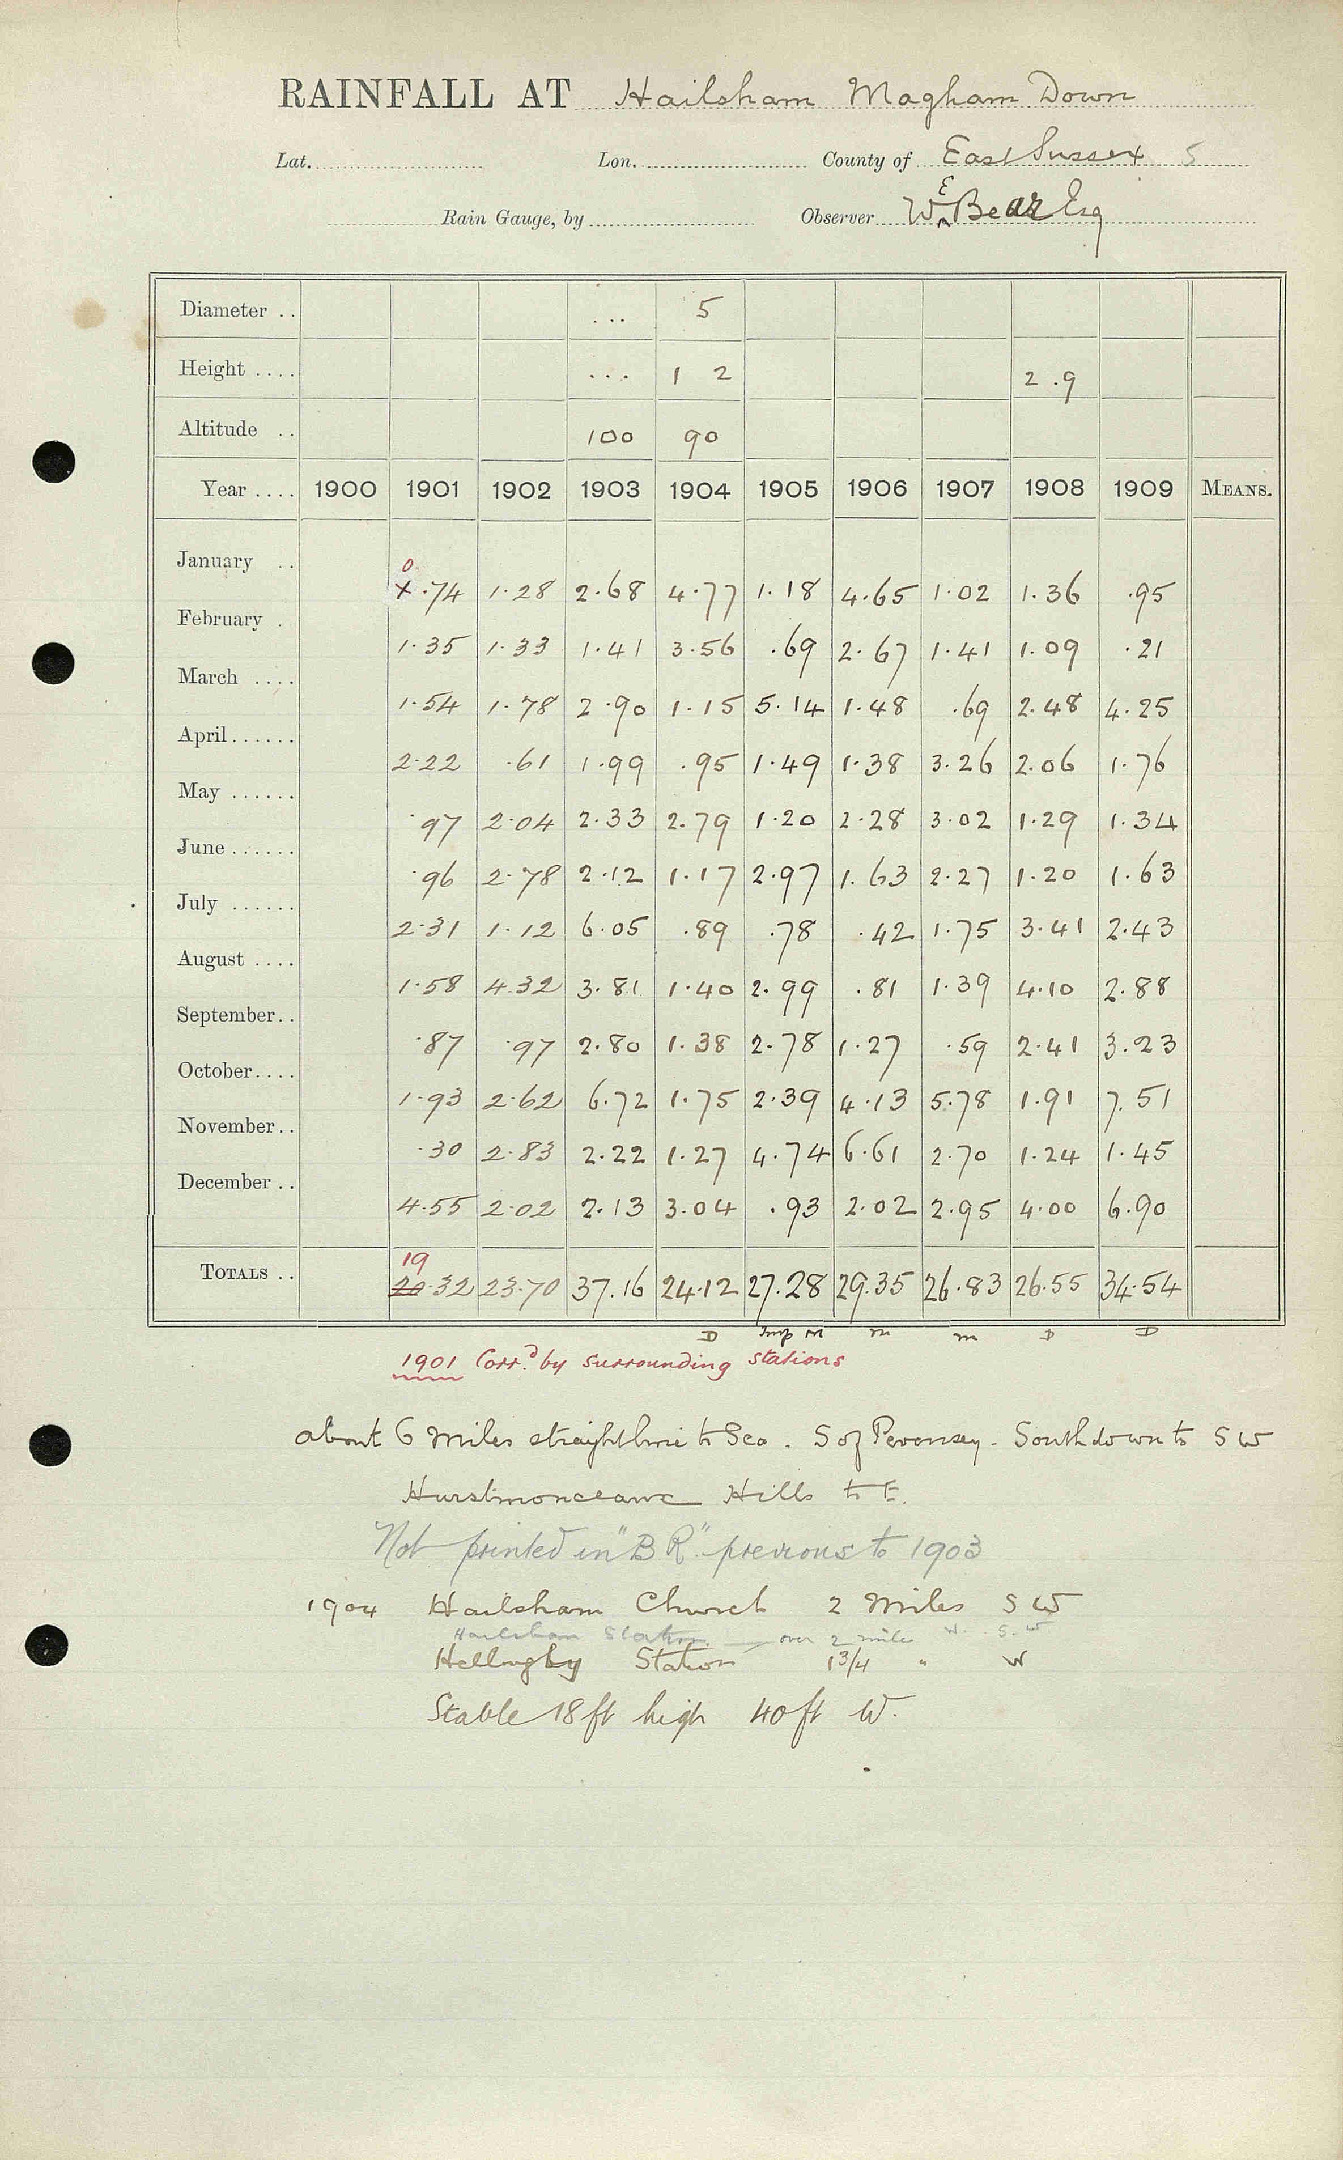 RAINFALL AT Hailsham Magham Down
Lat. Lon. County of East Sussex 5
Rain Gauge, by Observer W E Bear Esq
Diameter .. ... 5
Height .... ... 1 2 2.9
Altitude .. 100 90
Year .... 1900 1901 1902 1903 1904 1905 1906 1907 1908 1909 MEANS.
0
January .. .74 1.28 2.68 4.77 1.18 4.65 1.02 1.36 .95
February . 1.35 1.33 1.41 3.56 .69 2.67 1.41 1.09 .21
March .... 1.54 1.78 2.90 1.15 5.14 1.48 .69 2.48 4.25
April...... 2.22 .61 1.99 .95 1.49 1.38 3.26 2.06 1.76
May ...... .97 2.04 2.33 2.79 1.20 2.28 3.02 1.29 1.34
June ...... .96 2.78 2.12 1.17 2.97 1.63 2.27 1.20 1.63
July ...... 2.31 1.12 6.05 .89 .78 .42 1.75 3.41 2.43
August .... 1.58 4.32 3.81 1.40 2.99 .81 1.39 4.10 2.88
September.. .87 .97 2.80 1.38 2.78 1.27 .59 2.41 3.23
October.... 1.93 2.62 6.72 1.75 2.39 4.13 5.78 1.91 7.51
November.. .30 2.83 2.22 1.27 4.74 6.61 2.70 1.24 1.45
December .. 4.55 2.02 2.13 3.04 .93 2.02 2.95 4.00 6.90
19
TOTALS .. 20.32 23.70 37.16 24.12 27.28 29.35 26.83 26.55 34.54
D Imp M m m D D
1901 Corrd by surrounding stations
about 6 Miles straight line to Sea. S of Pevensey. Southdown to SW
Hurstmonceaux Hills to E.
Not printed in "B R" previous to 1903
1904 Hailsham Church 2 Miles SW
Hailsham Station over 2 miles W. S. W
Hellingly Station 1 3/4 " W
Stable 18 ft high 40 ft W.